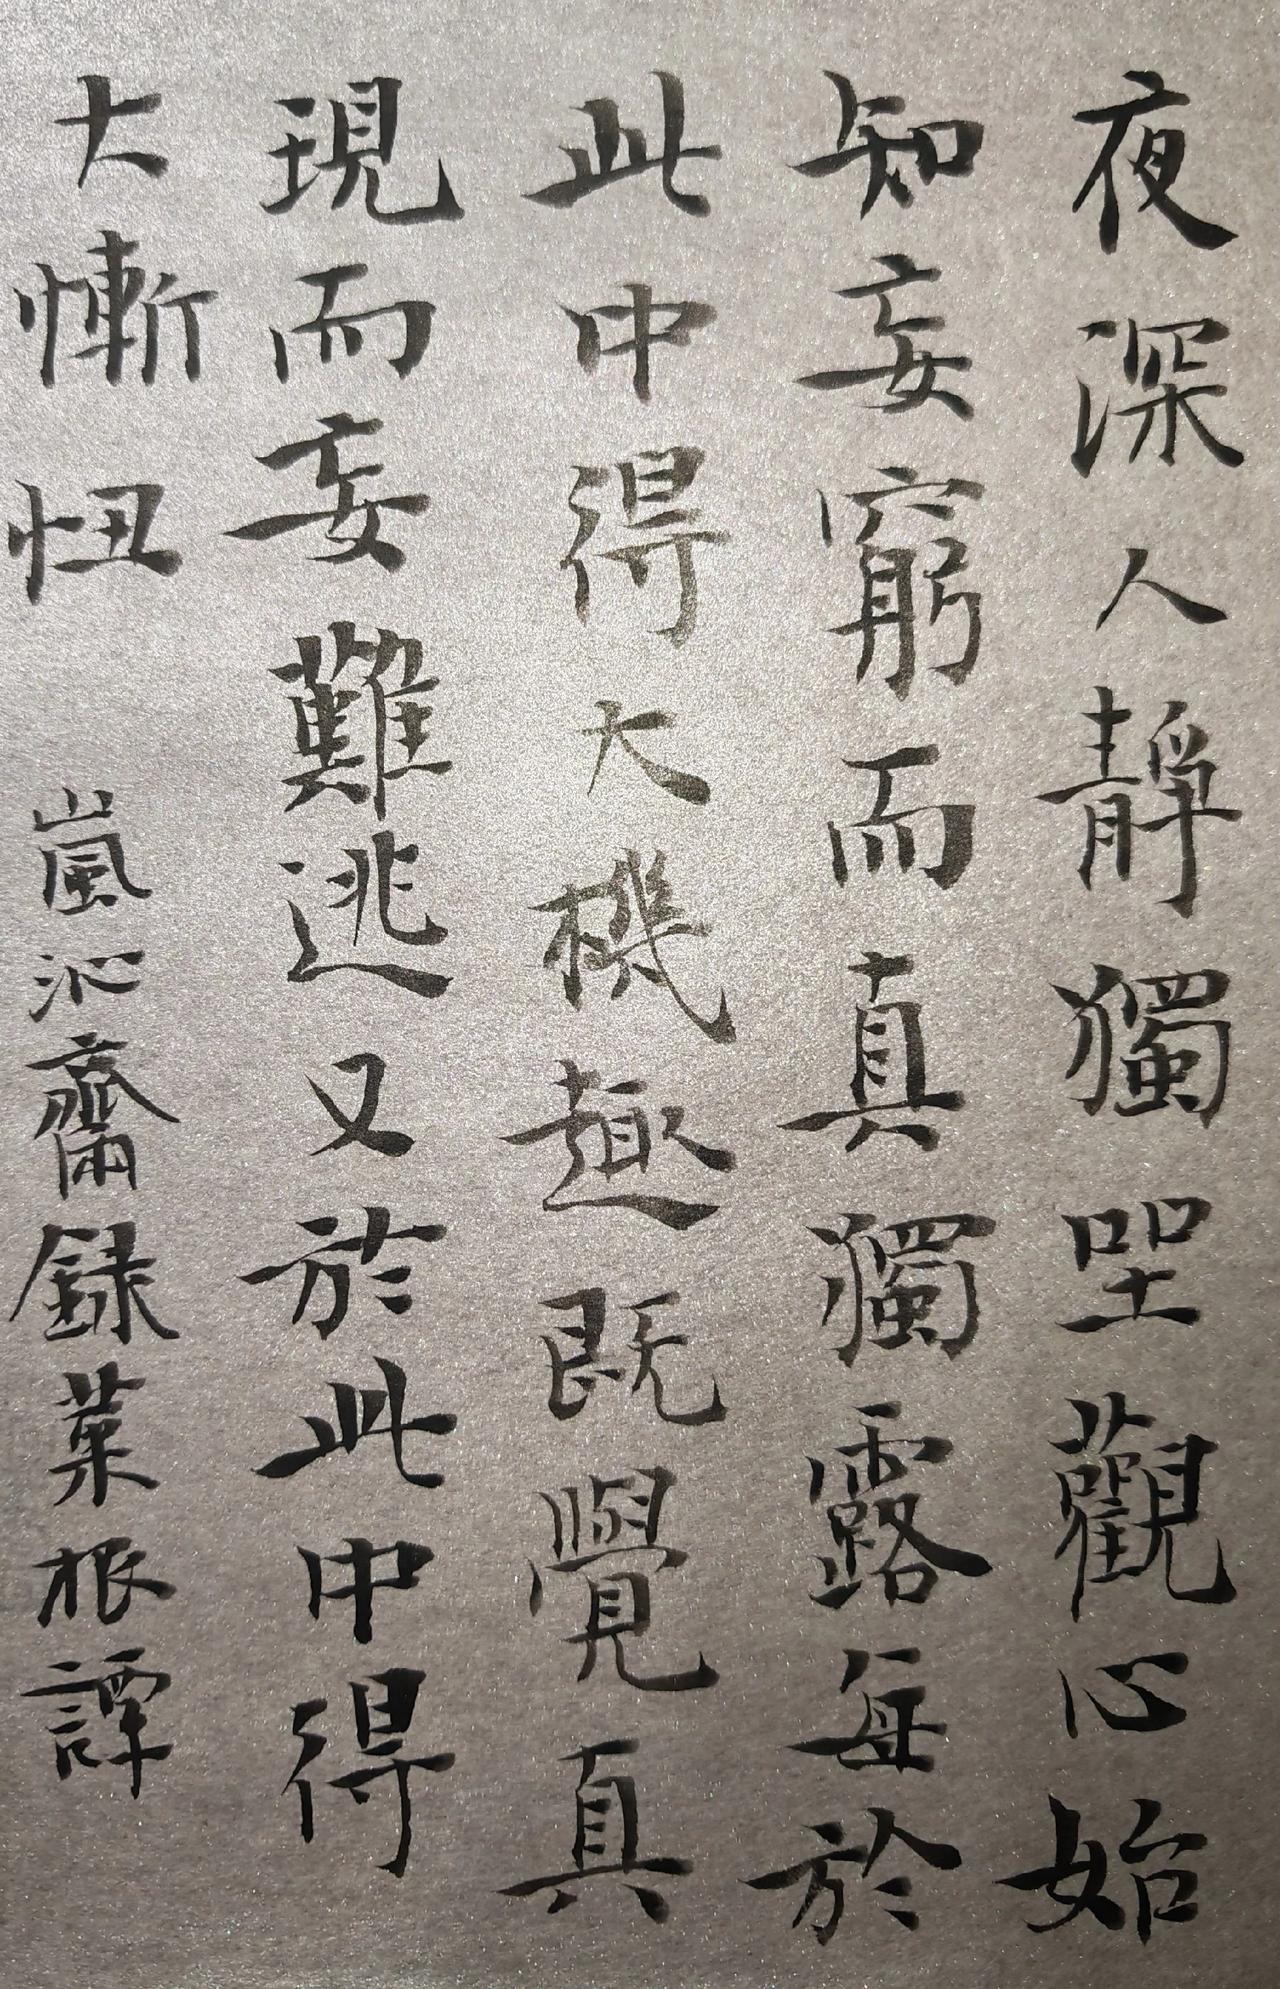 夜深人靜獨坐觀心始
知妄窮而真獨露每於
此中得大機趣既覺真
現而妄難逃又於此中得
大慚忸 嵐沁齋録菜根譚